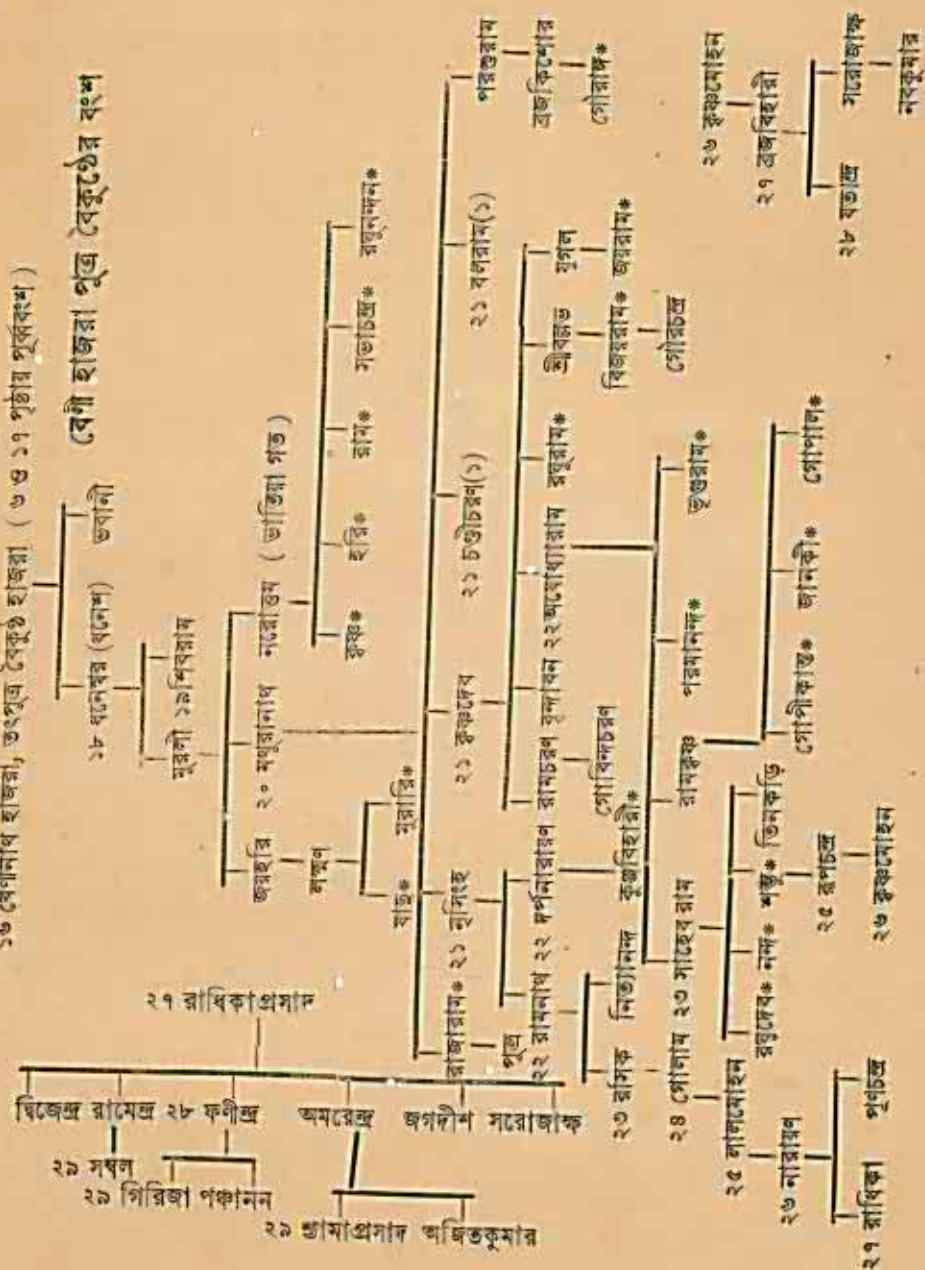 ১৬ বেণীনাথ হাজরা, তৎপুত্র বৈকুণ্ঠ হাজরা ( ৬ ও ১৭ পৃষ্ঠায় পূর্ব্ববংশ )
বেণী হাজরা পুত্র বৈকুণ্ঠের বংশ
১৮ ধনেশ্বর (ধনেশ) ভবানী
মুরলী ১৯শিবরাম
জয়হরি ২০ মথুরানাথ নরোত্তম ( ভাতিয়া গত )
লক্ষ্মণ
কৃষ্ণ* হরি* রাম* সভাচন্দ্র* রঘুনন্দন*
যাদু* মুরারি*
রাজারাম* ২১ নৃসিংহ ২১ কৃষ্ণদেব ২১ চণ্ডীচরণ(১) ২১ বলরাম(১) পরশুরাম
পুত্র
ব্রজকিশোর
গৌরাঙ্গ*
২২ রামনাথ ২২ দর্পনারায়ণ রামচরণ বৃন্দাবন ২২অযোধ্যারাম রঘুরাম* শ্রীবল্লভ যুগল
গোবিন্দচরণ
বিজয়রাম* জয়রাম*
গৌরচন্দ্র
২৩ রসিক নিত্যানন্দ কুঞ্জবিহারী*
২৩ সাহেব রাম রামকৃষ্ণ পরমানন্দ* ভৃগুরাম*
২৪ গোলাম
গোপীকান্ত* জানকী* গোপাল*
রঘুদেব* নন্দ* শম্ভু* তিনকড়ি
২৫ লালমোহন
২৫ রূপচন্দ্র
২৬ নারায়ণ
২৬ কৃষ্ণমোহন
২৭ রাধিকা পূর্ণচন্দ্র
২৬ কৃষ্ণমোহন
২৭ ব্রজবিহারী
২৮ যতীন্দ্র সরোজাক্ষ
নবকুমার
২৭ রাধিকাপ্রসাদ
দ্বিজেন্দ্র রামেন্দ্র ২৮ ফণীন্দ্র অমরেন্দ্র জগদীশ সরোজাক্ষ
২৯ সম্বল
২৯ গিরিজা পঞ্চানন
২৯ শ্যামাপ্রসাদ অজিতকুমার